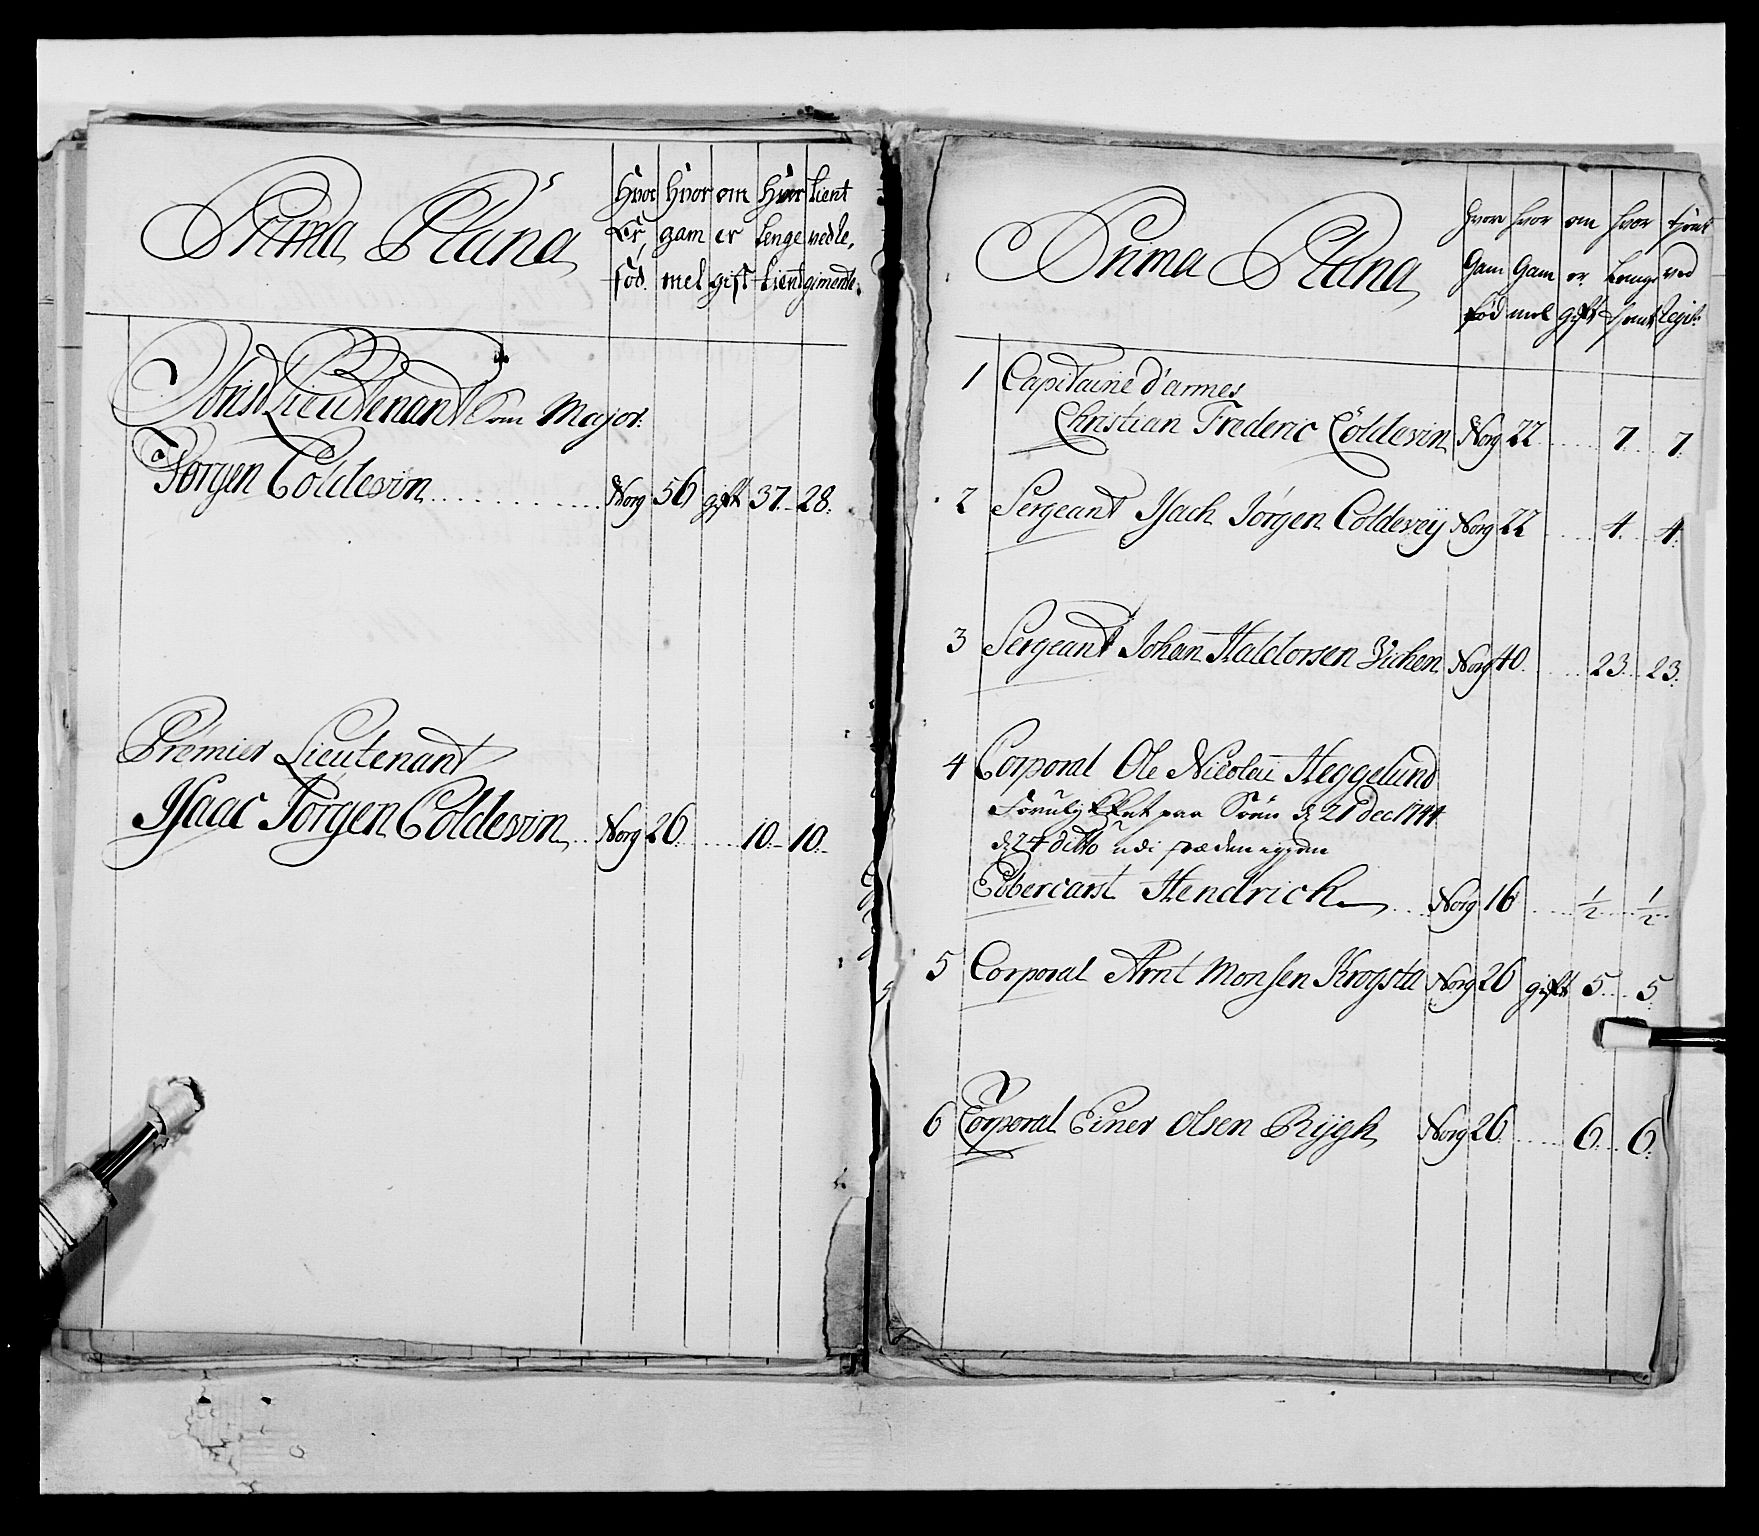 Prima Plana
Hvor Hvor om Hvor tient
Er gam er lenge ved Re,
fød. mel gift tient gimente.
Obrist Lieutenant Som Major.
Jørgen Coldevin Norg 56 gift 37. 28.
Premier Lieutenant
Isaac Jørgen Coldevin Norg 26 10. 10.
Prima Plana
hvor hvor om hvor tient
Gam Gam er Lenge ved
fød mel gift
1 Capitaine d'armes
Christian Frederic Coldevin Norg 22 7. 7.
2 Sergeant Isach Jørgen Coldevey Norg 22 4. 4.
3 Sergeant Johan Haldorsen Norg 40. 23. 23.
4 Corporal Ole Nicolai Heggelund
Forulykket paa Søen d 21 Dec 1744
d 24 ditto udi stæden igien
Ebbercarst Hendrich Norg 16 1/2 1/2
5 Corporal Arnt Monsen Krogsta Norg 26 gift 5. 5.
6 Corporal Einer Olsen Rijgh Norg 26 6. 6.